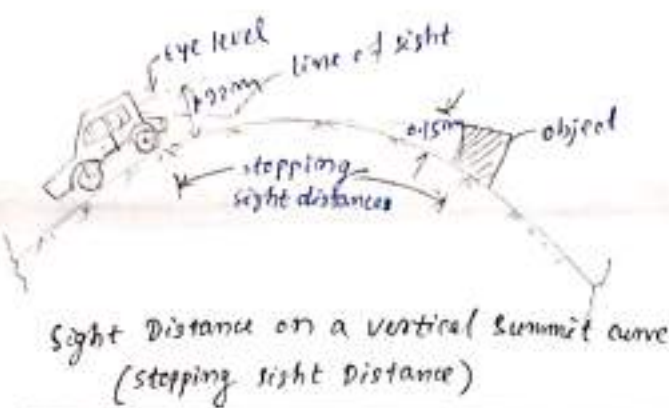 eye level
line of sight
0.15m
object
stopping
sight distances
Sight Distance on a vertical Summit curve
(stopping sight Distance)